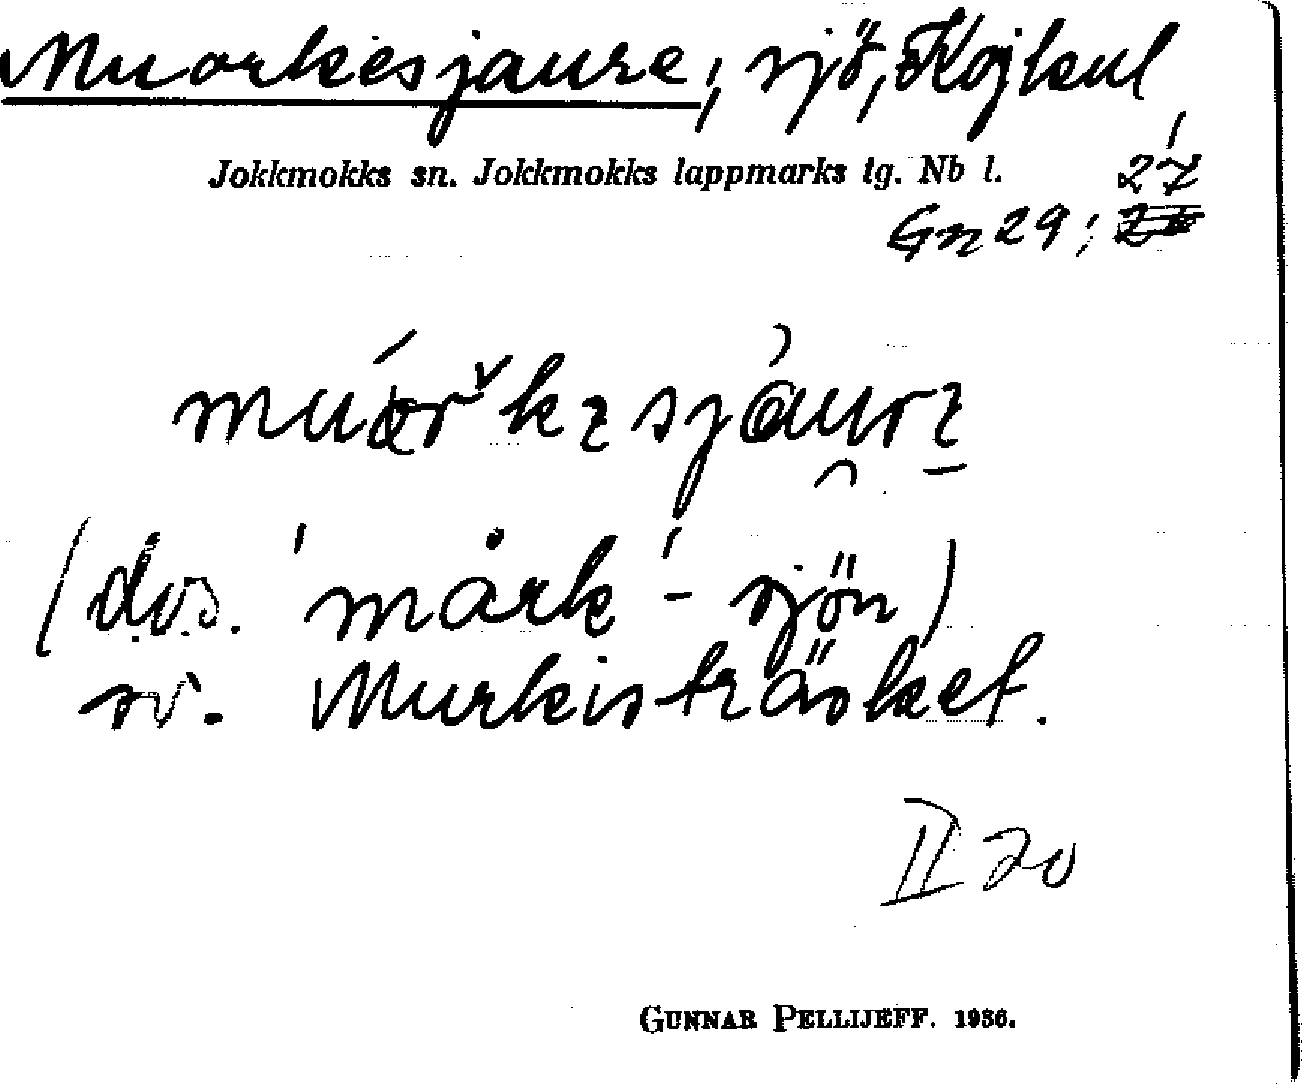 Muorkesjaure, sjö, Kojkul
Jokkmokks sn. Jokkmokks lappmarks tg. Nb l.
27
Gn 29;
(dvs. 'mårk'-sjön)
sv. Murkisträsket.
II 20
GUNNAR PELLIJEFF. 1936.